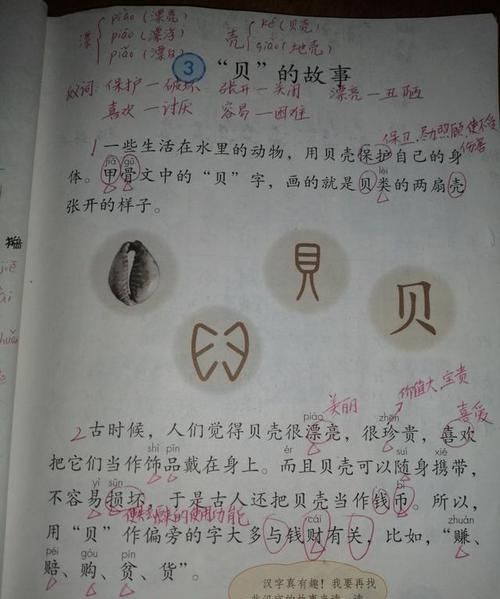 漂 piào（漂亮）
piāo（漂浮）
piǎo（漂白）
壳 ké（贝壳）
qiào（地壳）
3 “贝”的故事
反词：保护—破坏 张开—关闭 漂亮—丑陋
喜欢—讨厌 容易—困难
保卫，尽力照顾，使不受伤害
1 一些生活在水里的动物，用贝壳保护自己的身
jiǎ gǔ lèi
体。甲骨文中的“贝”字，画的就是贝类的两扇壳
张开的样子。
貝
贝
美丽 价值大，宝贵 喜爱
piào zhēn
2 古时候，人们觉得贝壳很漂亮，很珍贵，喜欢
shì pǐn suí xié
把它们当作饰品戴在身上。而且贝壳可以随身携带，
yì sǔn bì
不容易损坏，于是古人还把贝壳当作钱币。所以，
使失去原来的使用功能
cái zhuàn
用“贝”作偏旁的字大多与钱财有关，比如，“赚、
péi gòu pín
赔、购、贫、货”。
汉字真有趣！我要再找